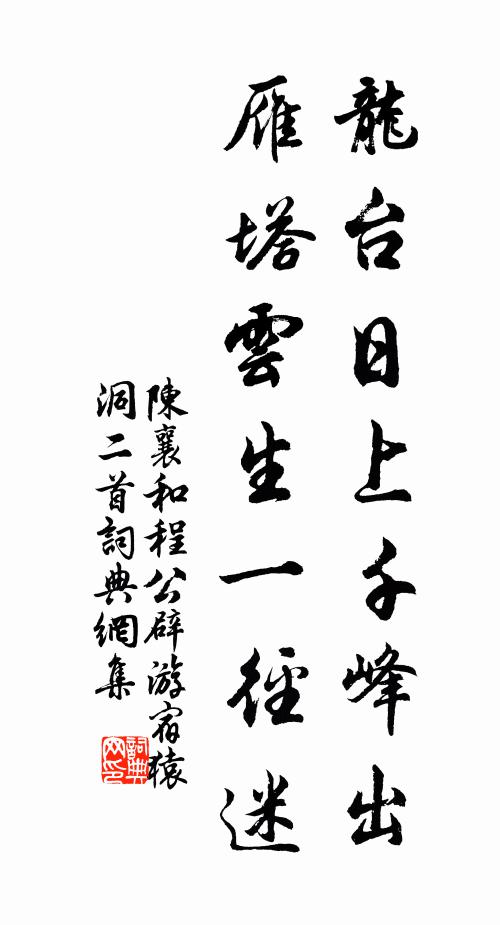 龍台日上千峰出
雁塔雲生一徑迷
陳襄和程公辟游宿猿
洞二首詞典網集
詞典
网印